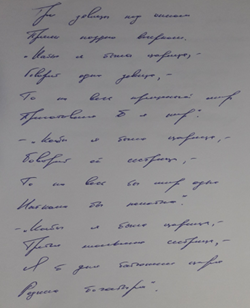 Три девицы под окном
Пряли поздно вечерком.
"Кабы я была царица,-
Говорит одна девица,-
То на весь крещеный мир
Приготовила б я пир".
- "Кабы я была царица,-
Говорит её сестрица,-
То на весь бы мир одна
Наткала бы полотна".
- "Кабы я была царица,-
Третья молвила сестрица,-
Я б для батюшки-царя
Родила богатыря".